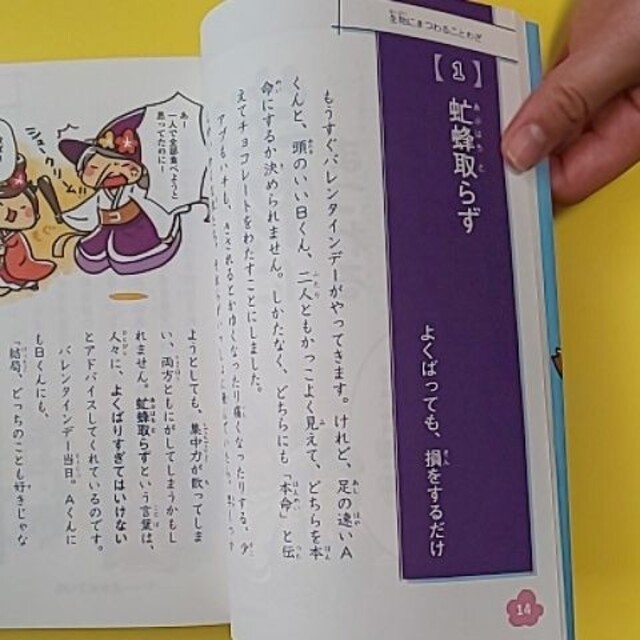 生物にまつわることわざ
【1】虻蜂取らず
よくばっても、損をするだけ
もうすぐバレンタインデーがやってきます。けれど、足の速いA
くんと、頭のいいB日くん、二人ともかっこよく見えて、どちらを本
命にするか決められません。しかたなく、どちらにも「本命」と伝
えてチョコレートをわたすことにしました。
アブもハチも、さされるとかゆくなったり痛くなったりする、少
14
あー
一人で全部食べようと
思ってたのにー
ようとしても、集中力が散ってしま
い、両方ともにがしてしまうかもし
れません。虻蜂取らずという言葉は、
人々に、よくばりすぎてはいけない
とアドバイスしてくれているのです。
バレンタインデー当日。Aくんに
もB日くんにも、
「結局、どっちのことも好きじゃな